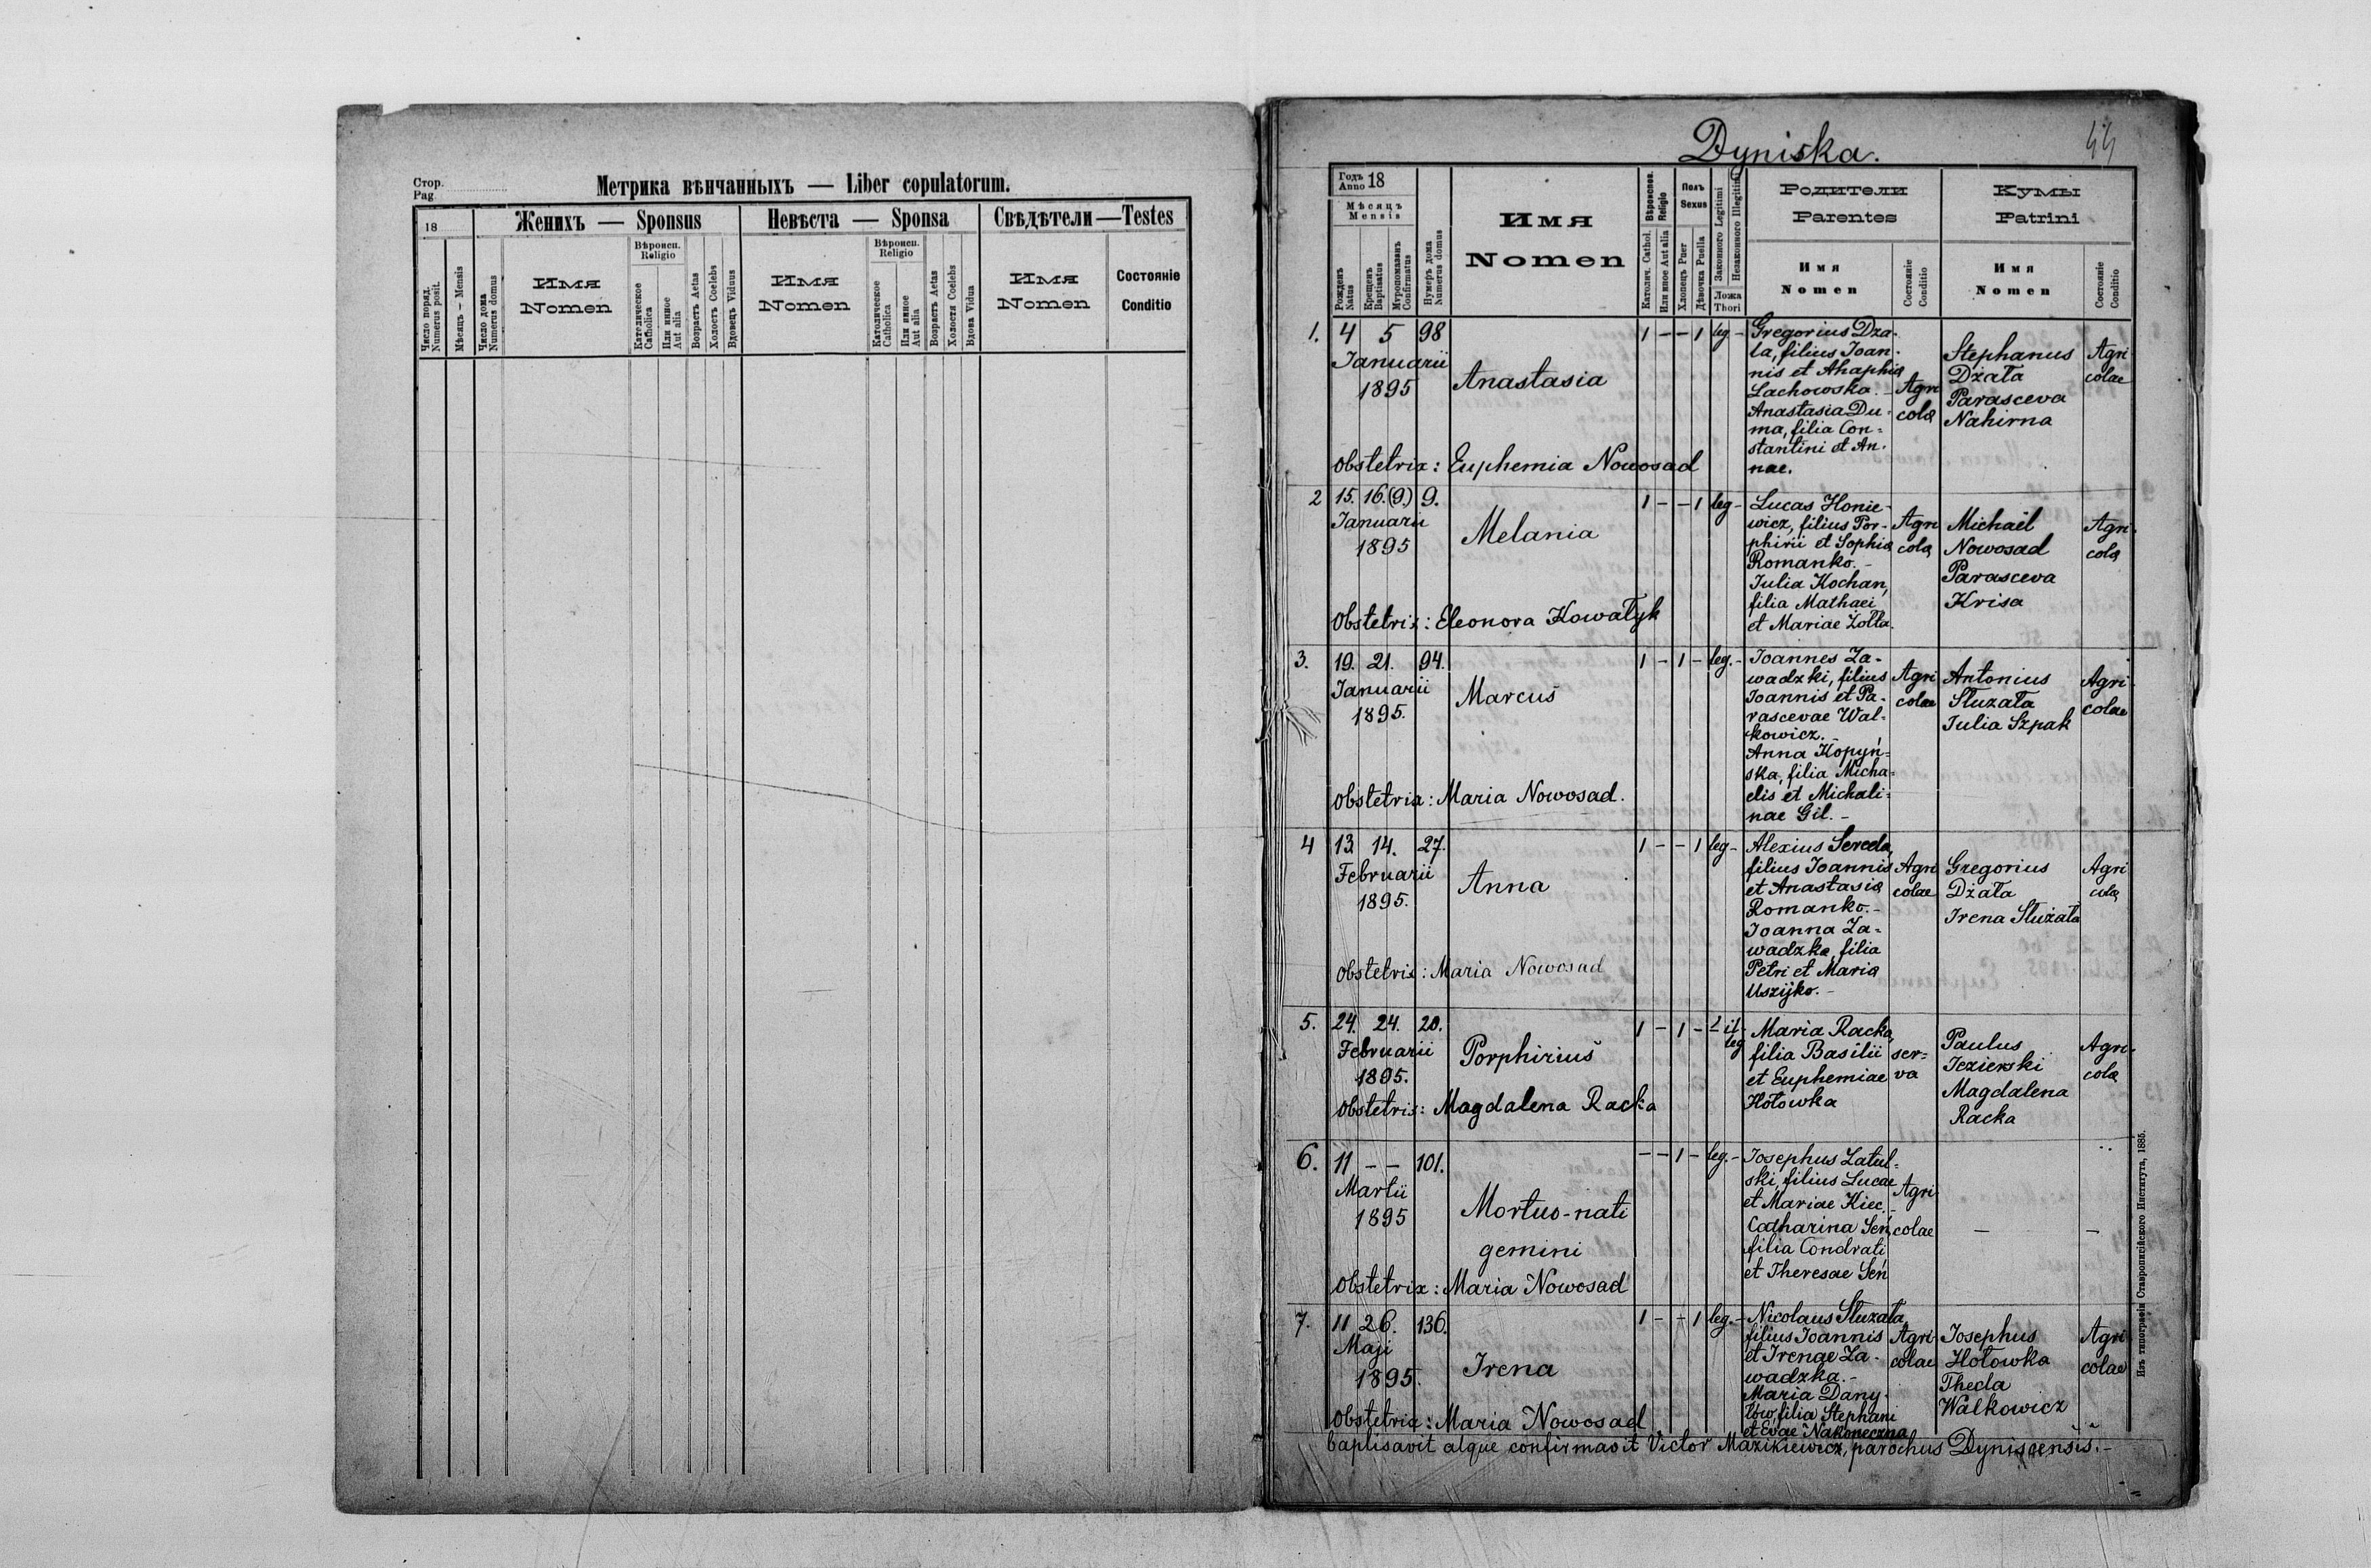 Стор.
Pag.
Метрика вѣнчанныхъ — Liber copulatorum.
18
Женихъ — Sponsus
Невѣста — Sponsa
Свѣдѣтели — Testes
Число поряд.
Numerus posit.
Мѣсяць — Mensis
Число дома
Numerus domus
Имя
Nomen
Вѣроисп.
Religio
Кателическое
Catholica
Или инное
Aut alia
Возрастъ Aetas
Холостъ Coelebs
Вдовецъ Viduus
Имя
Nomen
Вѣроисп.
Religio
Католическое
Catholica
Или инное
Aut alia
Возрастъ Aetas
Холостя Coelebs
Вдова Vidua
Имя
Nomen
Состояніе
Conditio
Dyniska.
44
Годъ
Anno 18
Мѣсяцъ
Mensis
Рожденъ
Natus
Крещенъ
Baptisatus
Муропомазанъ
Confirmatus
Нумеръ дома
Numerus domus
Имя
Nomen
Вѣроиспов.
Religio
Католич. Cathol.
Или иное Aut alia
Полъ
Sexus
Хлопецъ Puer
Дѣвочка Puella
Законного Legitimi
Незаконного Illegitimi
Ложа
Thori
Родители
Parentes
Имя
Nomen
Состояніе
Conditio
Кумы
Patrini
Имя
Nomen
Состояніе
Conditio
1. 4 5 98
Januarii
1895
Anastasia
1 – – 1 leg –
Gregorius Dza-
la, filius Joan-
nis et Ahaphia
Lachowska. –
Anastasia Du-
ma, filia Con=
stantini et An-
nae.
Agri
colae
Stephanus
Dżała
Parasceva
Nahirna
Agri
colae
Obstetrix: Euphemia Nowosad
2 15. 16.(9.) 9.
Januarii
1895
Melania
1 – – 1 leg –
Lucas Honie-
wicz, filius Por-
phirii et Sophia
Romanko. –
Julia Kochan,
filia Mathaei
et Mariae Żołta.
Agri
colae
Michaël
Nowosad
Parasceva
Krisa
Agri-
colae
Obstetrix: Eleonora Kowałyk
3. 19. 21. 94.
Januarii
1895.
Marcus
1 – 1 – leg. –
Joannes Za-
wadzki, filius
Joannis et Pa-
rascevae Wal-
kowicz. –
Anna Kopyń=
ska, filia Micha=
elis et Michali=
nae Gil. –
Agri
colae
Antonius
Słuzała
Julia Szpak
Agri-
colae
Obstetrix: Maria Nowosad.
4 13. 14. 27.
Februarii
1895.
Anna
1 – – 1 leg –
Alexius Sereda,
filius Joannis
et Anastasia
Romanko. –
Joanna Za=
wadzka, filia
Petri et Maria
Uszijko. –
Agri
colae
Gregorius
Dżała
Irena Służała
Agri
colae
Obstetrix: Maria Nowosad
5. 24. 24. 20.
Februarii
1895.
Porphirius
1 – 1 – – il-
leg
Maria Racka,
filia Basilii
et Euphemiae
Hołowka
ser=
va
Paulus
Jezierski
Magdalena
Racka
Agri-
colae
Obstetrix: Magdalena Racka
6. 11 – – 101.
Martii
1895
Mortuo-nati
gemini
– – 1 – leg. –
Josephus Zatul=
ski, filius Lucae
et Mariae Kiec. –
Catharina Seń,
filia Condrati
et Theresae Seń
Agri
colae
– –
Obstetrix: Maria Nowosad
7. 11 26. 136.
Maji
1895.
Irena
1 – – 1 leg. –
Nicolaus Słuzała,
filius Joannis
et Irenae Za-
wadzka. –
Maria Dany-
łów, filia Stephani
et Evae Nakoneczna
Agri-
colae
Josephus
Hołowka
Thecla
Walkowicz
Agri
colae
Obstetrix: Maria Nowosad
baptisavit atque confirmavit Victor Mazikiewicz, parochus Dyniscensis. –
Изъ типографіи Ставропигійского Института, 1885.